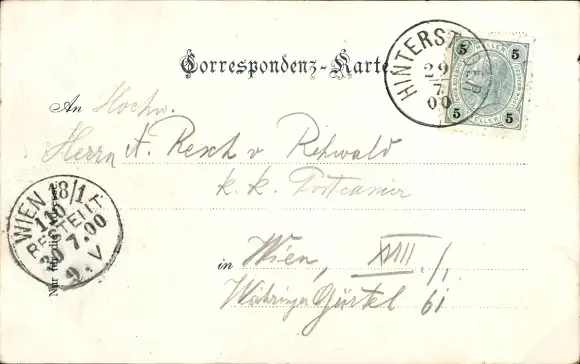 Correspondenz-Karte
HINTERST
29
7
00
5 5
5 5
An Hochw.
Herrn A. Resch v
k. k.
WIEN 18/1
110
BESTELLT
7.00
9. V
Nur für die
in Wien, XVIII./1.
Währinger Gürtel 61